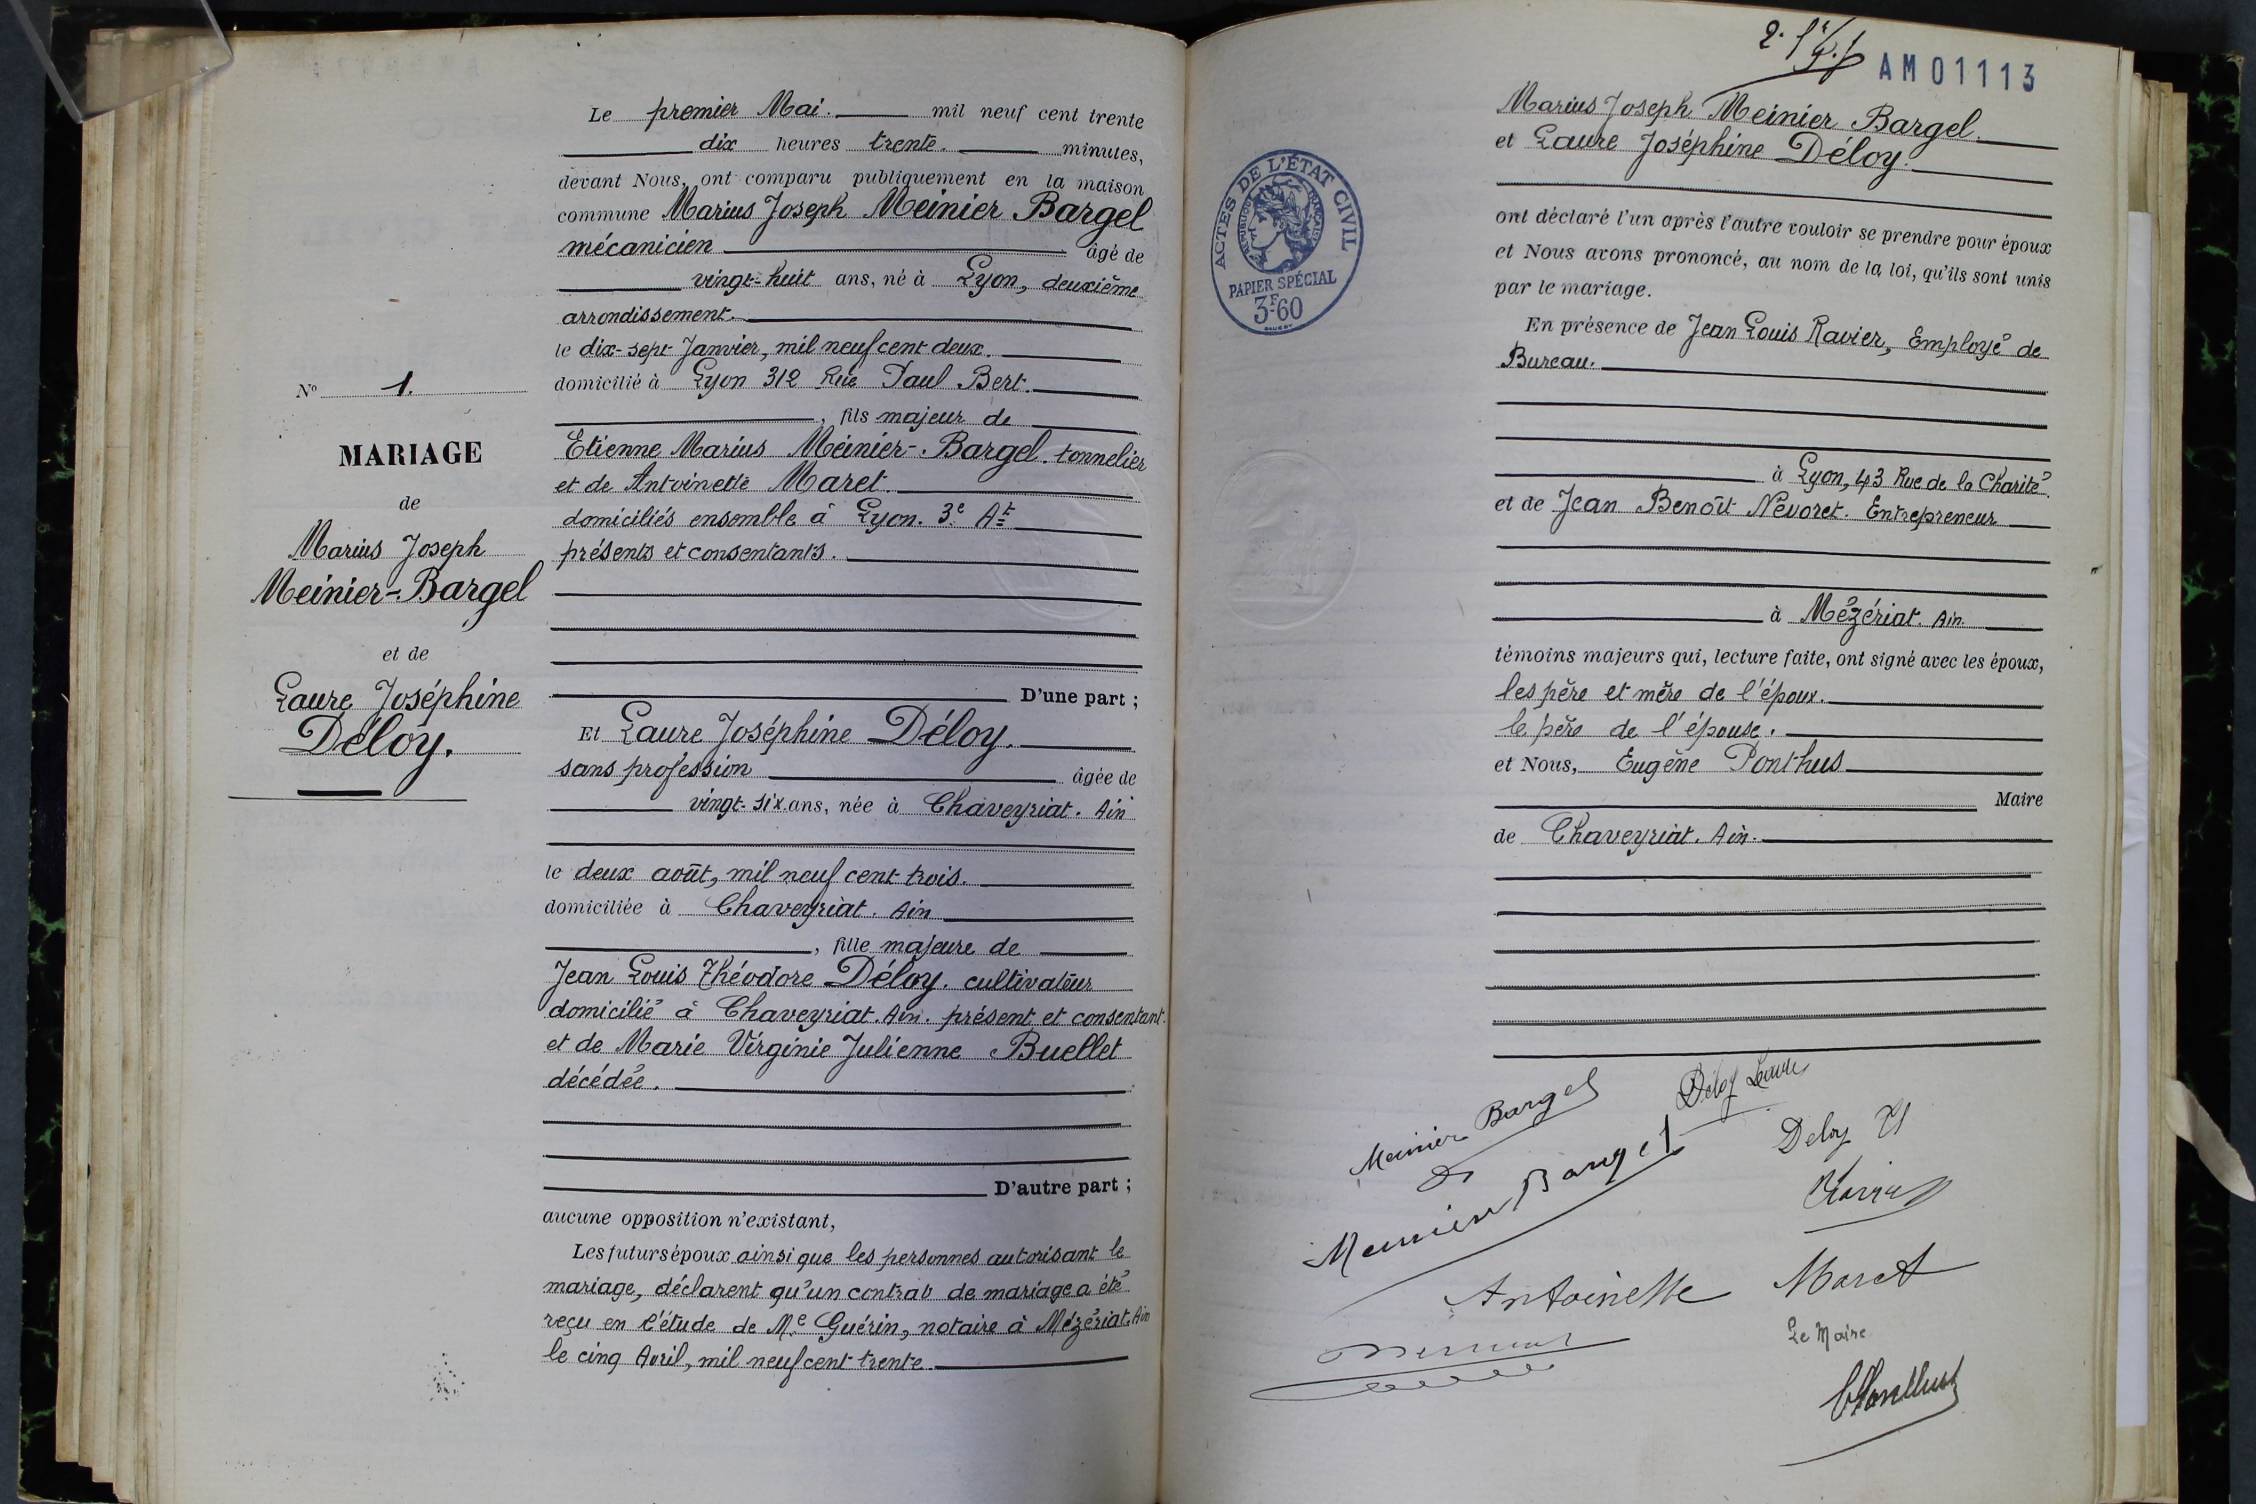 N° 1.
MARIAGE
de
Marius Joseph
Meinier-Bargel
et de
Laure Joséphine
Déloy.
Le premier Mai. mil neuf cent trente
dix heures trente. minutes,
devant Nous, ont comparu publiquement en la maison
commune Marius Joseph Meinier Bargel
mécanicien âgé de
vingt-huit ans, né à Lyon, deuxième
arrondissement.
le dix-sept Janvier, mil neuf cent deux.
domicilié à Lyon 312 Rue Paul Bert.
, fils majeur de
Etienne Marius Meinier-Bargel. tonnelier
et de Antoinette Maret.
domiciliés ensemble à Lyon. 3e At
présents et consentants.
D'une part ;
Et Laure Joséphine Déloy.
sans profession âgée de
vingt-six ans, née à Chaveyriat. Ain
le deux août, mil neuf cent trois.
domiciliée à Chaveyriat. Ain
, fille majeure de
Jean Louis Théodore Déloy. cultivateur
domicilié à Chaveyriat. Ain. présent et consentant.
et de Marie Virginie Julienne Buellet
décédée.
D'autre part ;
aucune opposition n'existant,
Les futurs époux ainsi que les personnes autorisant le
mariage, déclarent qu'un contrat de mariage a été
reçu en l'étude de Me Guérin, notaire à Mézériat. Ain
le cinq Avril, mil neuf cent trente.
AM01113
Marius Joseph Meinier Bargel.
et Laure Joséphine Déloy.
ACTES DE L'ÉTAT CIVIL
RÉPUBLIQUE FRANÇAISE
PAPIER SPÉCIAL
3F60
ont déclaré l'un après l'autre vouloir se prendre pour époux
et Nous avons prononcé, au nom de la loi, qu'ils sont unis
par le mariage.
En présence de Jean Louis Ravier, Employé de
Bureau.
à Lyon, 43 Rue de la Charité.
et de Jean Benoît Névoret. Entrepreneur
à Mézériat. Ain.
témoins majeurs qui, lecture faite, ont signé avec les époux,
les père et mère de l'époux.
le père de l'épouse.
et Nous, Eugène Ponthus
Maire
de Chaveyriat. Ain.
Meinier Bargel
Déloy Laure
Meinier Bargel
Deloy
Ravier
Antoinette Maret
Le Maire